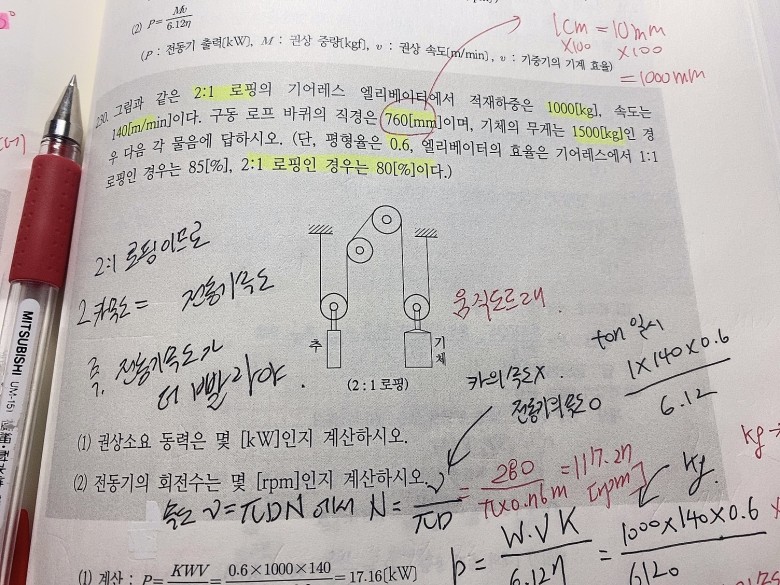 (2) P = Mv / 6.12η
(P : 전동기 출력[kW], M : 권상 중량[kgf], v : 권상 속도[m/min], υ : 기중기의 기계 효율)
1cm = 10mm
×100 ×100
= 1000mm
230. 그림과 같은 2:1 로핑의 기어레스 엘리베이터에서 적재하중은 1000[kg], 속도는
140[m/min]이다. 구동 로프 바퀴의 직경은 760[mm]이며, 기체의 무게는 1500[kg]인 경
우 다음 각 물음에 답하시오. (단, 평형율은 0.6, 엘리베이터의 효율은 기어레스에서 1:1
로핑인 경우는 85[%], 2:1 로핑인 경우는 80[%]이다.)
2:1 로핑이므로
2·카속도 = 전동기속도
즉, 전동기속도가
더 빨라야.
추
기체
(2 : 1 로핑)
움직도르래
ton 일시
1×140×0.6 / 6.12
카의 속도 X
전동기의 속도 O
(1) 권상소요 동력은 몇 [kW]인지 계산하시오.
(2) 전동기의 회전수는 몇 [rpm]인지 계산하시오.
속도 v = πDN 에서 N = v / πD = 280 / π×0.76m = 117.27 [rpm]
kg
kg
P = W.V.K / 6.12η = 1000×140×0.6 / 6120
(1) 계산 : P = KWV = 0.6×1000×140 = 17.16[kW]
MITSUBISHI
UM-151